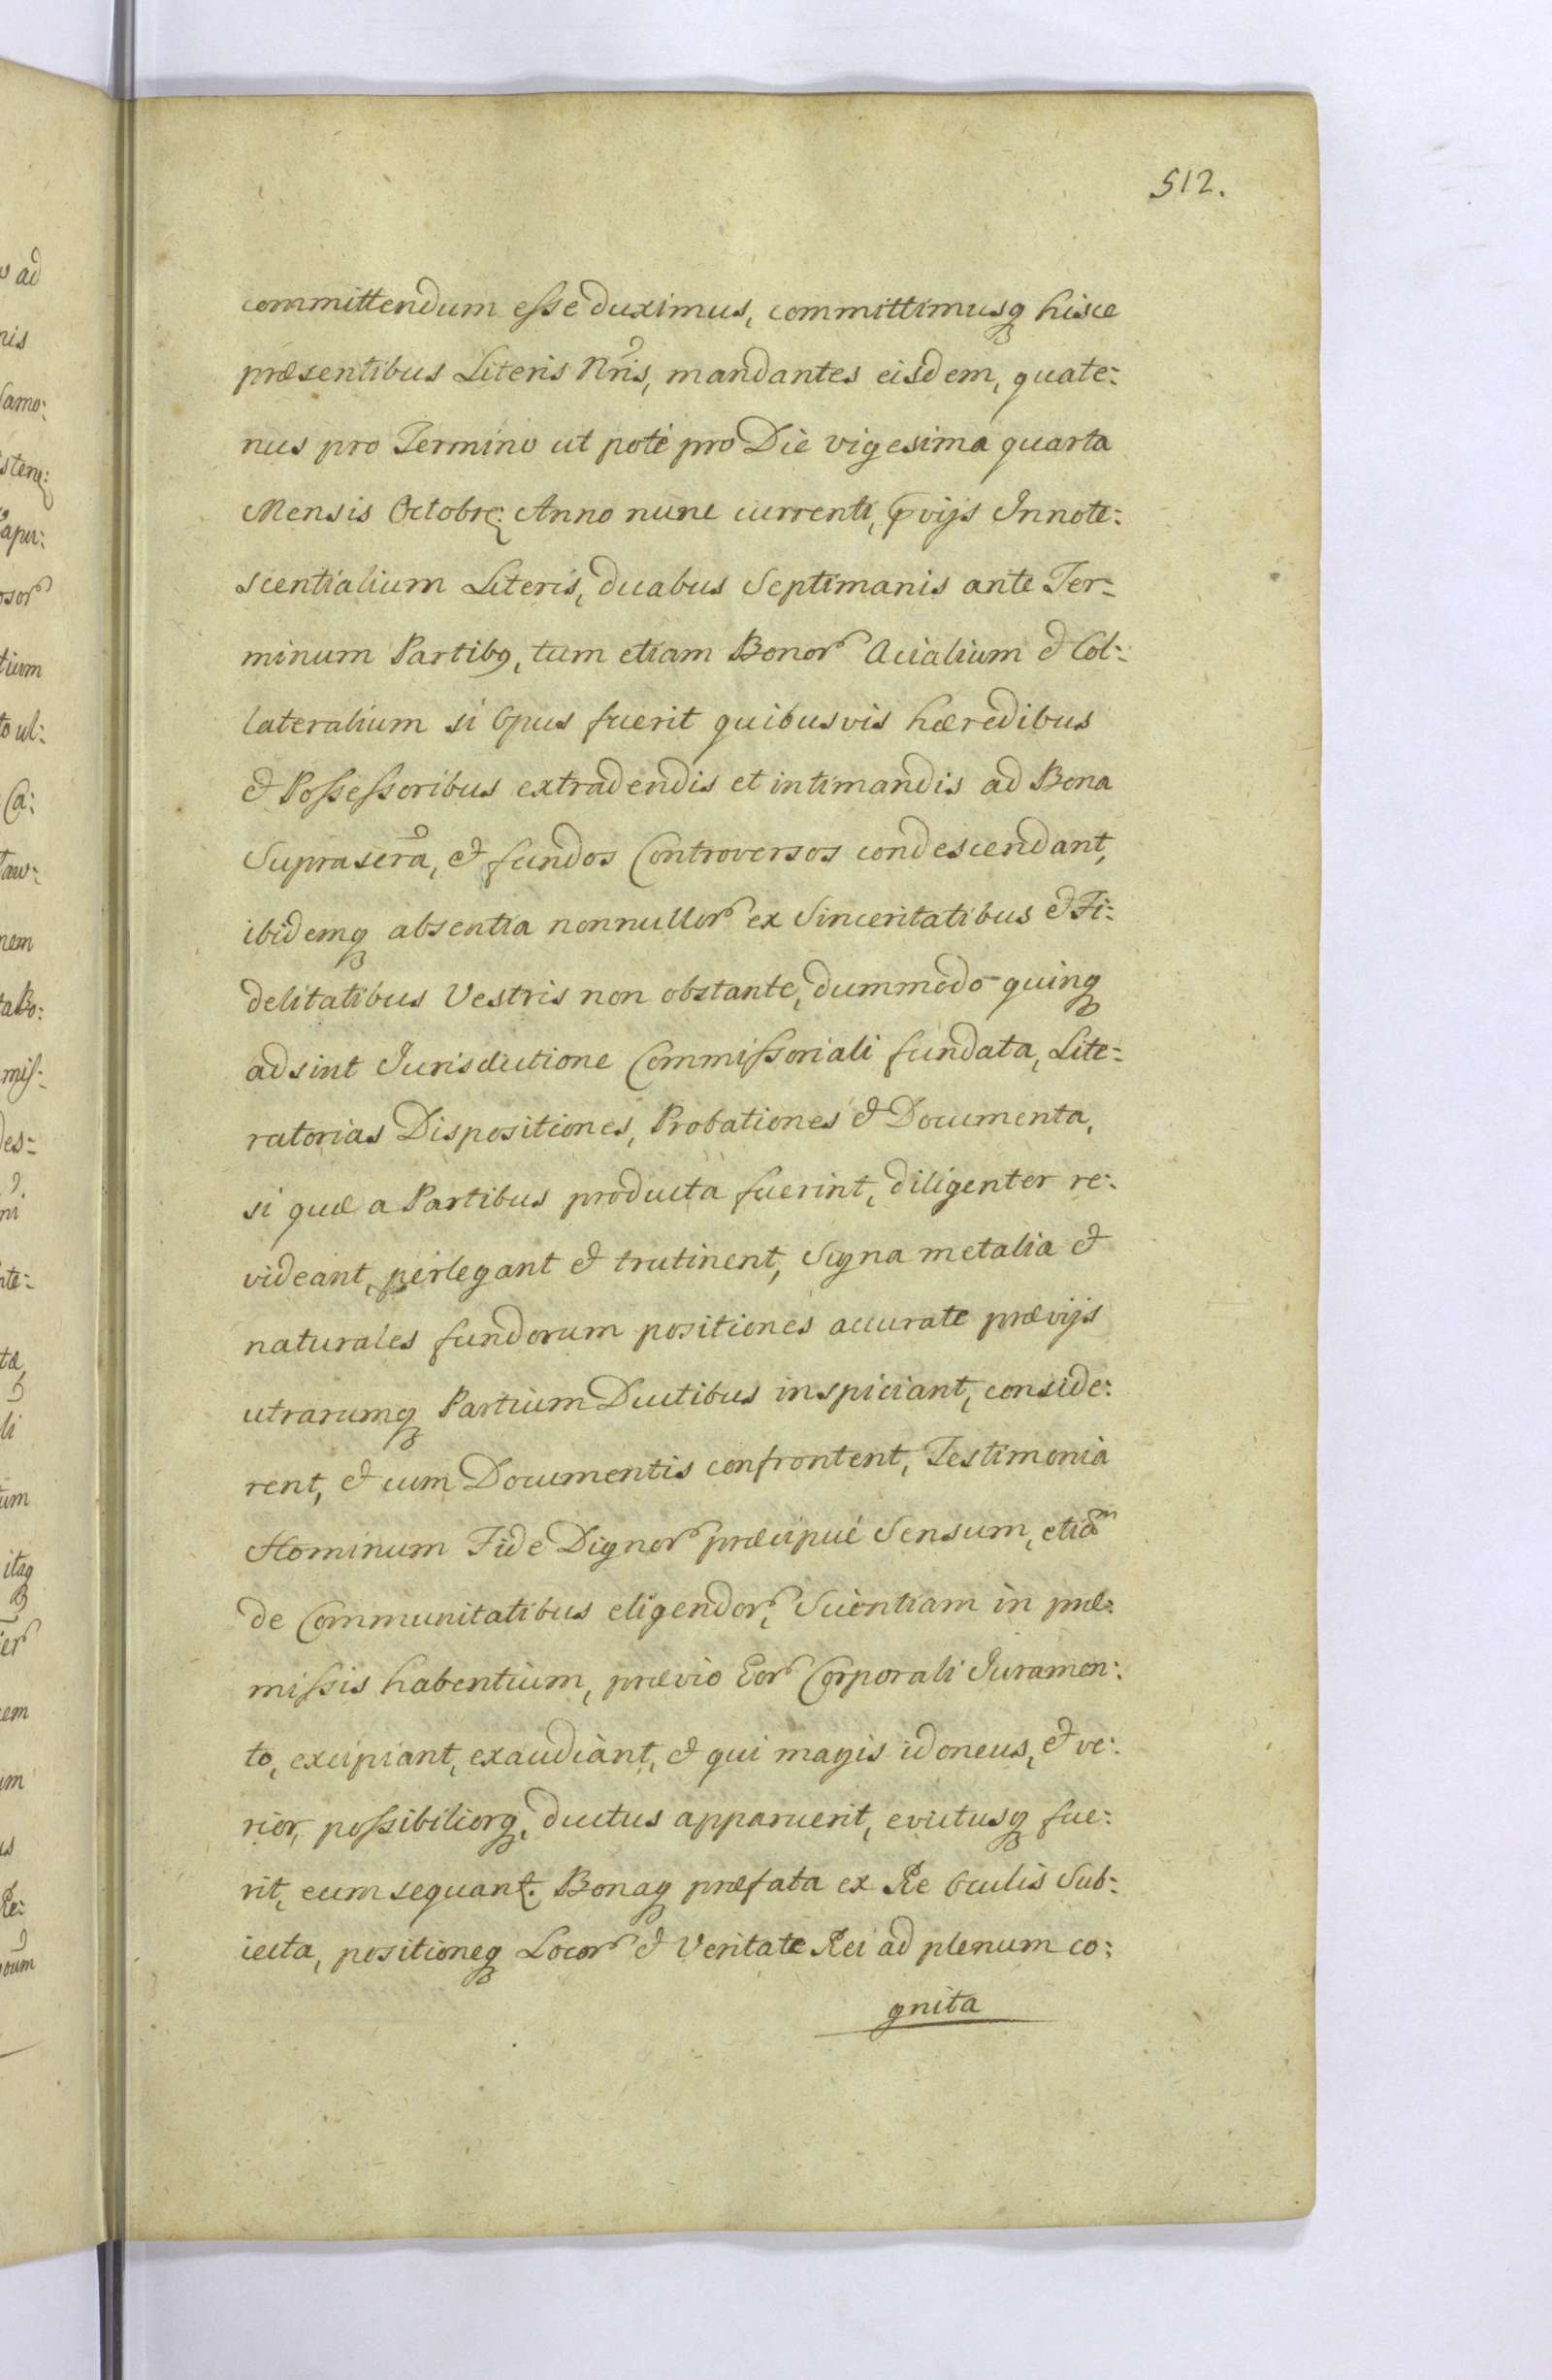 512.
committendum esse duximus, committimusq hisce
præsentibus Literis Nris, mandantes eisdem, quate:
nus pro Termino ut poté pro Die vigesima quarta
Mensis Octobr: Anno nunc currenti, pvijs Innote:
scentialium Literis, duabus Septimanis ante Ter:
minum Partibq, tum etiam Bonor Acialium & Col:
lateralium si Opus fuerit quibusvis hæredibus
& Possessoribus extradendis et intimandis ad Bona
Suprascra, & fundos Controversos condescendant,
ibidemq absentia nonnullor ex Sinceritatibus & Fi:
delitatibus Vestris non obstante, dummodo quinq
adsint Jurisdictione Commissoriali fundata, Lite:
ratorias Dispositiones, Probationes & Documenta,
si quæ a Partibus producta fuerint, diligenter re:
videant, perlegant & trutinent, Signa metalia &
naturales fundorum positiones accurate prævijs
utrarumq Partium Ductibus inspiciant, conside:
rent, & cum Documentis confrontent, Testimonia
Hominum Fide Dignor præcipué Sensum, etia
de Communitatibus eligendor, Scientiam in præ:
missis habentium, prævio Eor Corporali Juramen:
to, excipiant, exaudiant, & qui magis idoneus, & ve:
rior, possibiliorq, ductus apparuerit, evictusq fue:
rit, eum sequant. Bonaq præfata ex Re Oculis Sub:
iecta, positioneq Locor & Veritate Rei ad plenum co:
gnita
s ad
nis
samo:
apu:
osor
tium
to ul:
Ca:
nem
mis:
des:
nte:
li
tum
itaq
em
um
Re: